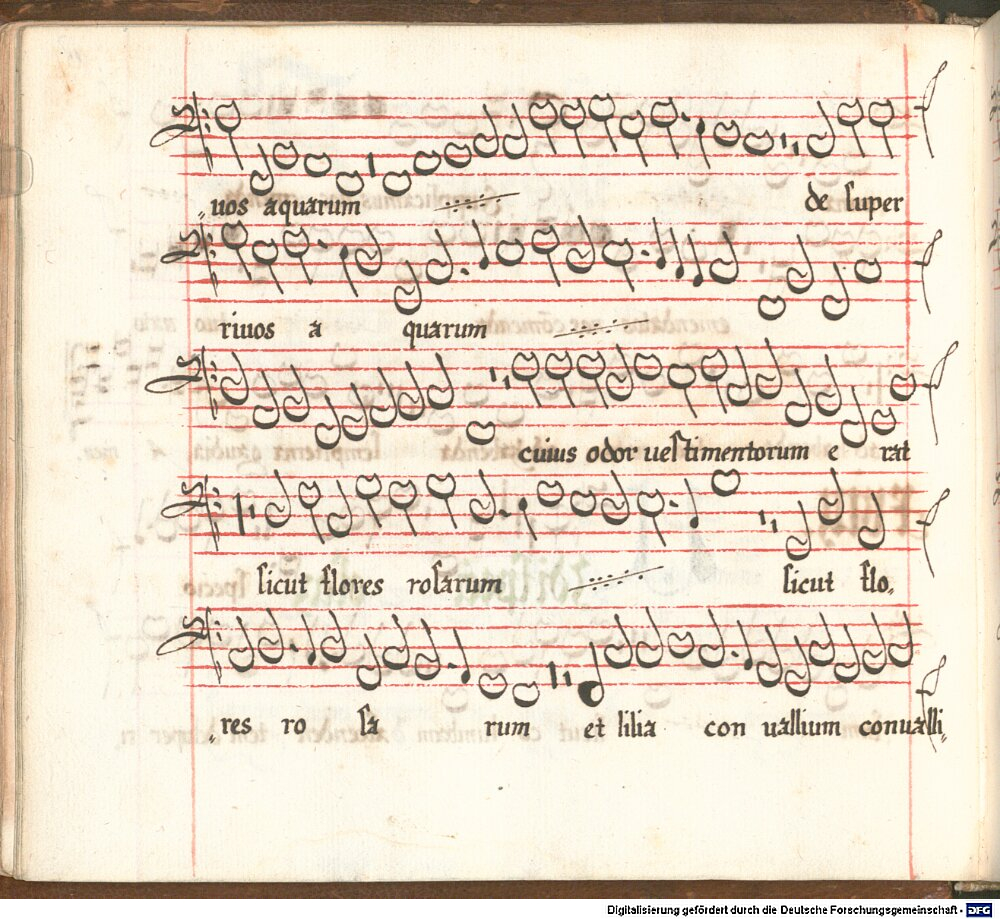 „uos aquarum de super
riuos a quarum
cuius odor uestimentorum e rat
sicut flores rosarum sicut flo„
„res ro sa rum et lilia con uallium conualli„
Digitalisierung gefördert durch die Deutsche Forschungsgemeinschaft - DFG